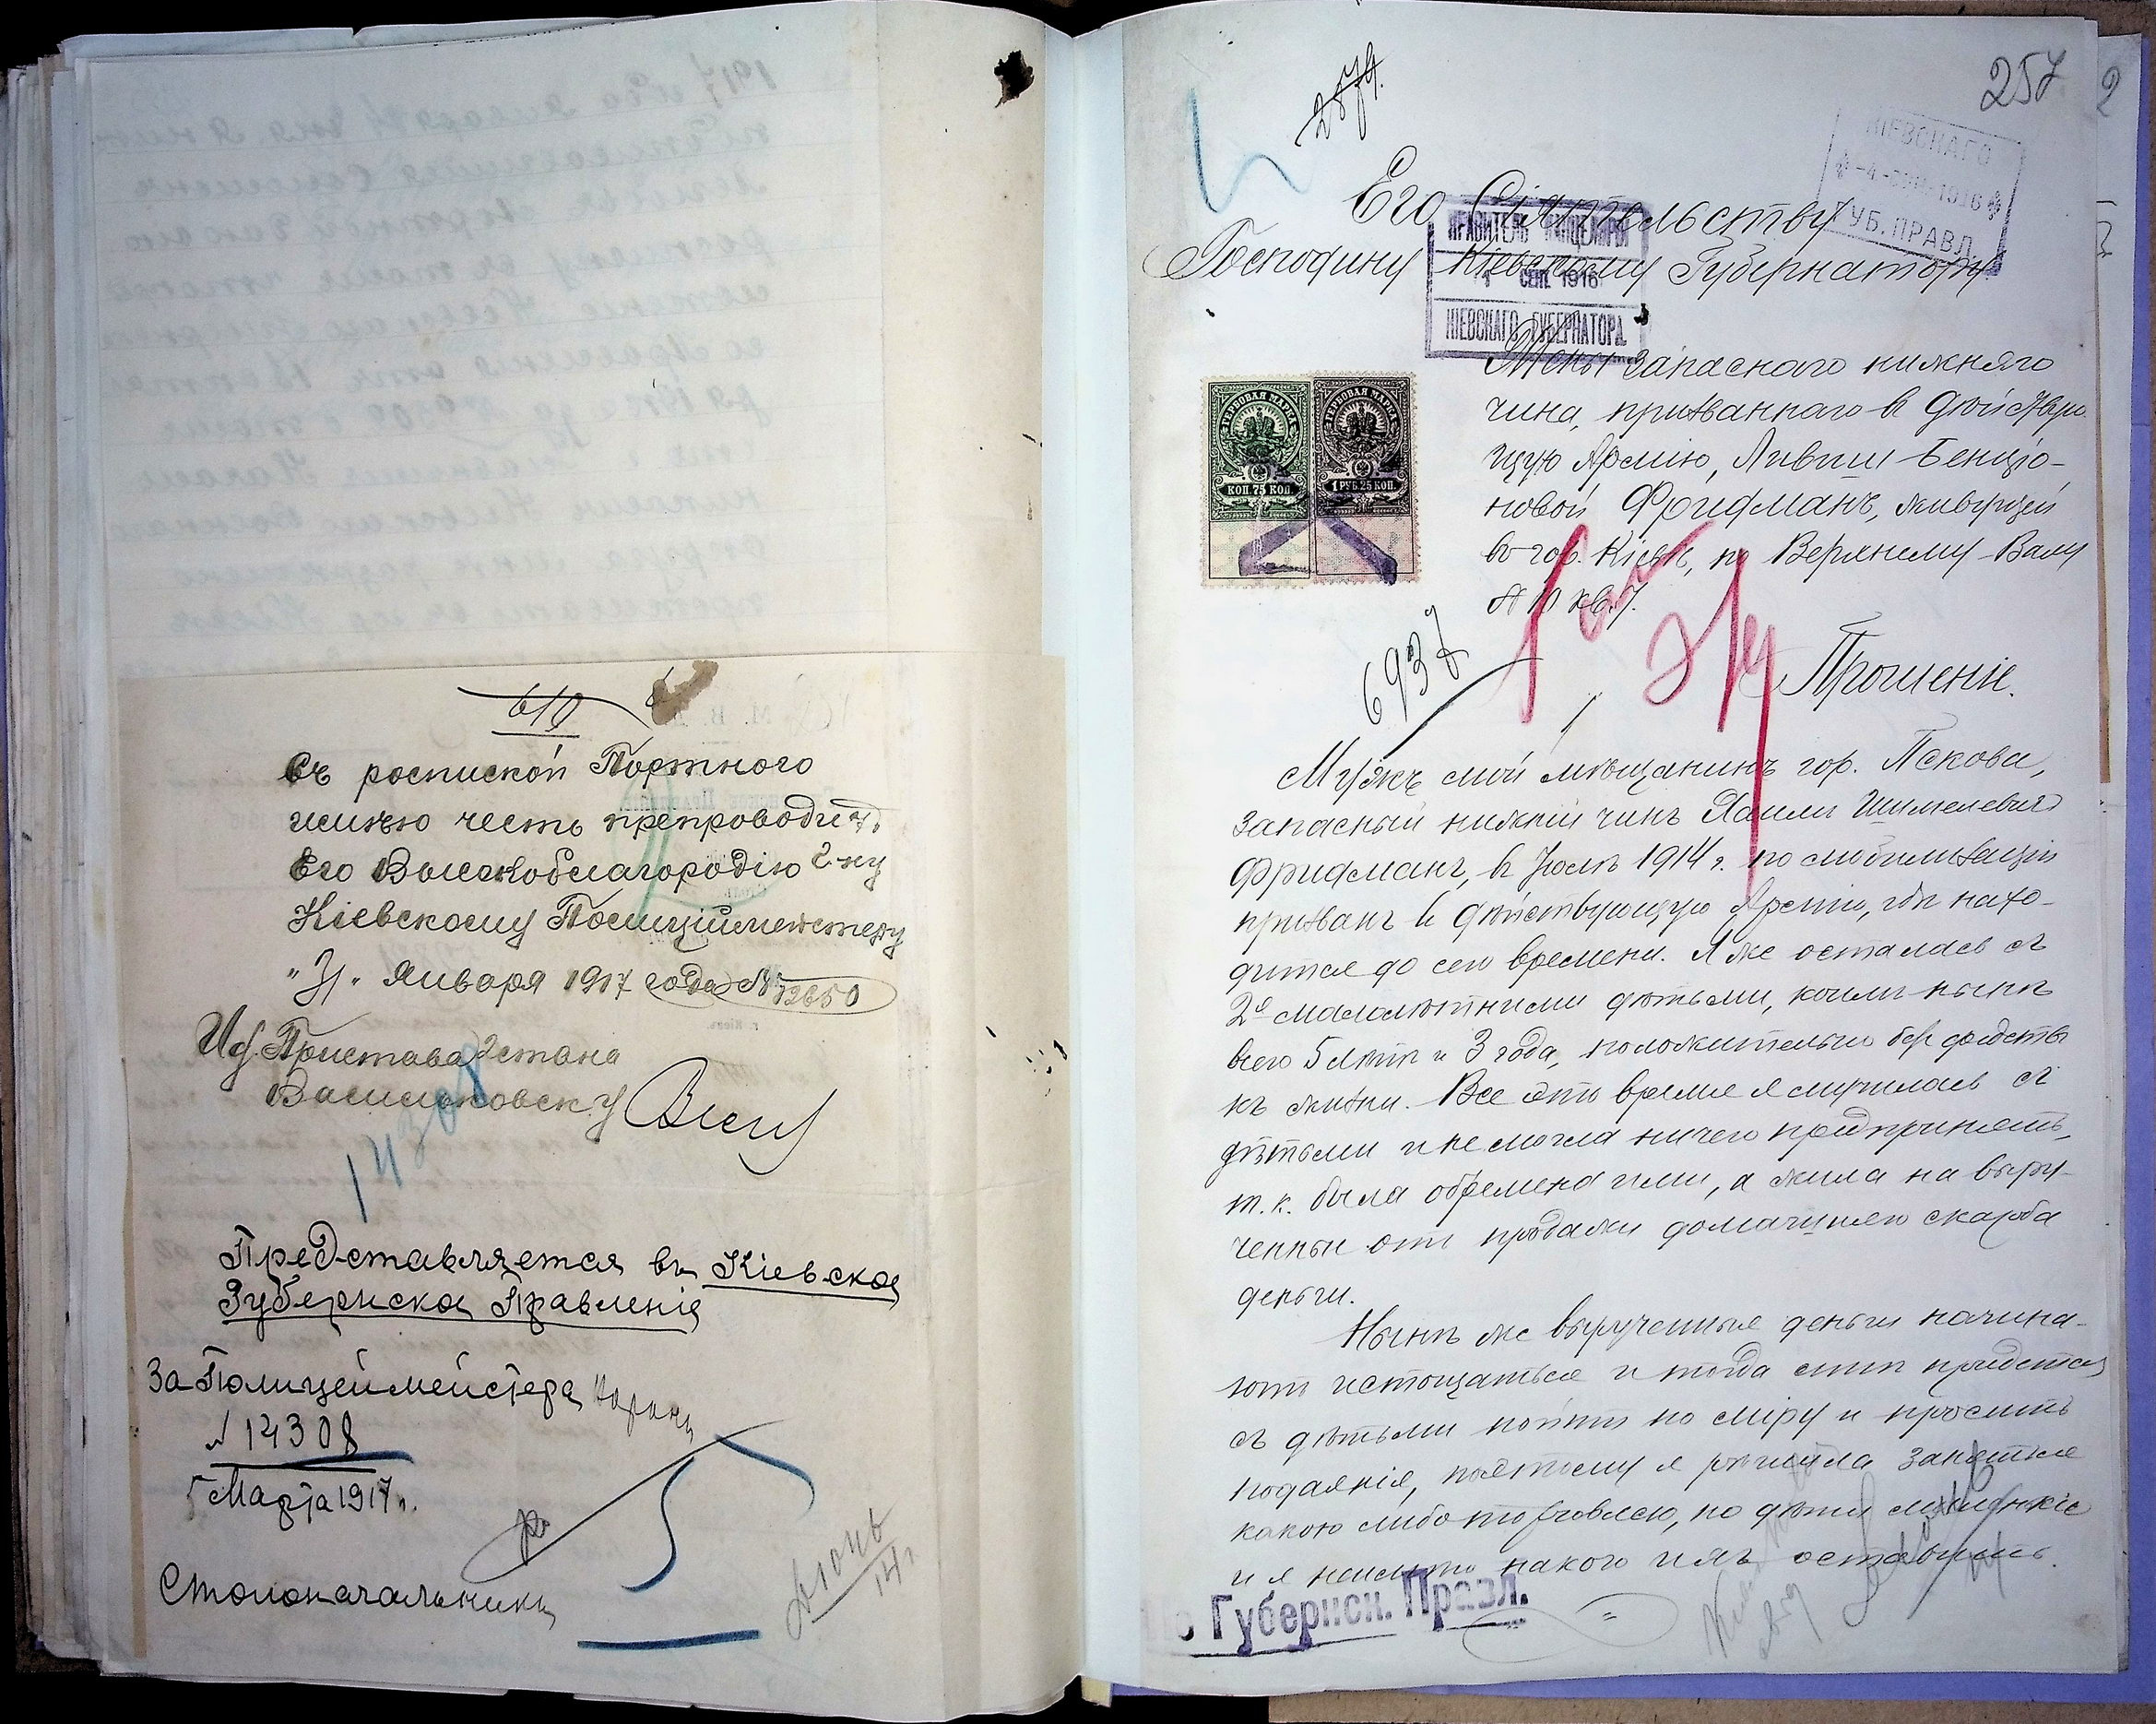 610
Съ роспиской Портного
имѣю честь препроводить
Его Высокоблагородію Г-ну
Кіевскому Полиційместеру
"31" Января 1917 года №12650
Иф. Пристава 2 стана
Васильковск. у
14308
Представляется въ Кіевское
Губернское Правленіе
За Полицеймейстера
№ 14308
5 Марта 1917 г.
Столоначальникъ
257
2
2579.
КІЕВСКАГО
1916
ГУБ. ПРАВЛ.
Его Сіятельству
Господину Кіевскому Губернатору
ПРАВИТЕЛЬ КАНЦЕЛЯРІИ
4 СЕН. 1916
КІЕВСКАГО ГУБЕРНАТОРА
Жены запаснаго нижняго
чина, призваннаго в дѣйствую
щую Армію, Ливши Бенціо-
новой Фридманъ, живущей
въ гор. Кіевѣ, по Верхнему-Валу
№ 10 кв. 7.
ГЕРБОВАЯ МАРКА
КОП. 75 КОП.
ГЕРБОВАЯ МАРКА
1 РУБ. 25 КОП.
6937
Прошеніе.
Мужъ мой мѣщанинъ гор. Пскова,
запасный нижній чинъ Шимелевичъ
Фридманъ, въ Іюлѣ 1914 г. по мобилизаціи
призванъ в дѣйствующую Армію, гдѣ нахо-
дится до сего времени. Я же осталась съ
2ᵃ малолѣтними дѣтьми, коимъ нынѣ
всего 5 лѣтъ и 3 года, положительно безъ средствъ
къ жизни. Все это время я мучилась съ
дѣтьми и не могла ничего предпринять,
т. к. была обремена ими, а жила на выру-
ченныя отъ продажи домашняго скарба
деньги.
Нынѣ же вырученные деньги начина-
ютъ истощаться и тогда придется
съ дѣтьми пойти по міру и просить
подаянія, поэтому я рѣшила заняться
какою либо торговлею, но дѣти маленькіе
и я неимѣю на кого ихъ оставить.
Губернск. Правл.